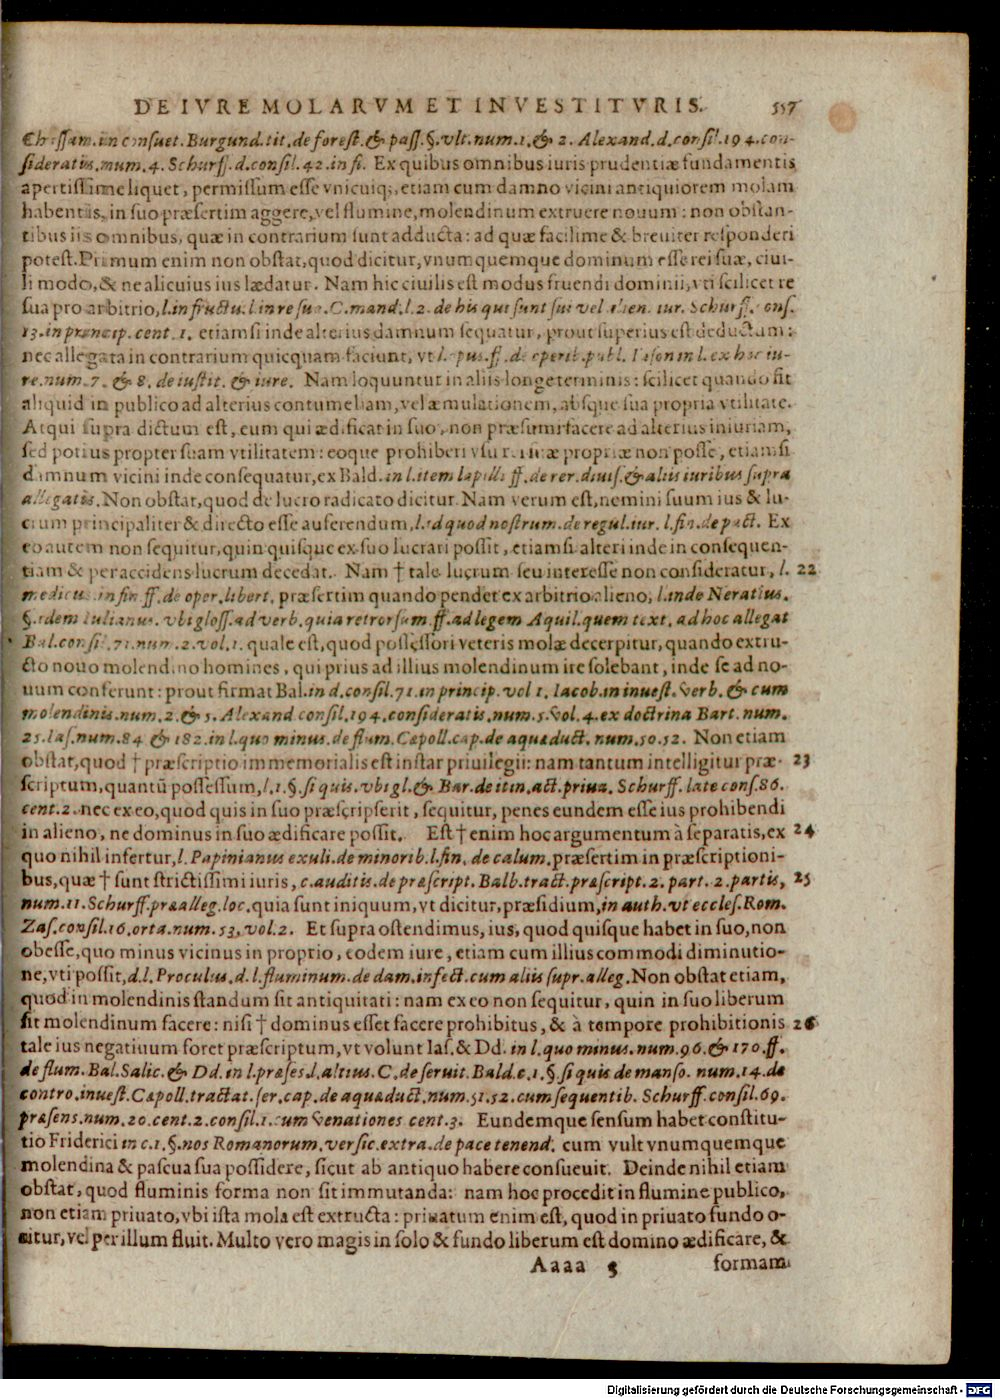 DE IVRE MOLARVM ET INVESTITVRIS. 557
Chassam. in consuet. Burgund. tit. de forest. & pass. §. vlt. num. 1. & 2. Alexand. d. consil. 194. con-
sideratis, num. 4. Schurff. d. consil. 42. in fi. Ex quibus omnibus iuris prudentiæ fundamentis
apertissime liquet, permissum esse vnicuiq;, etiam cum damno vicini antiquiorem molam
habentis, in suo præsertim aggere, vel flumine, molendinum extruere nouum: non obstan-
tibus iis omnibus, quæ in contrarium sunt adducta: ad quæ facilime & breuiter responderi
potest. Primum enim non obstat, quod dicitur, vnumquemque dominum esse rei suæ, ciui-
li modo, & ne alicuius ius lædatur. Nam hic ciuilis est modus fruendi dominii, vti scilicet re
sua pro arbitrio, l. in fructu. l. in re sua. C. mand. l. 2. de his qui sunt sui vel alien. iur. Schurff. cons.
13. in princip. cent. 1. etiamsi inde alterius damnum sequatur, prout superius est deductum:
nec allegata in contrarium quicquam faciunt, vt l. opus. ff. de operib. publ. Iason in l. ex hoc iu-
re. num. 7. & 8. de iustit. & iure. Nam loquuntur in aliis longe terminis: scilicet quando sit
aliquid in publico ad alterius contumeliam, vel æmulationem, absque sua propria vtilitate.
Atqui supra dictum est, eum qui ædificat in suo, non præsumi facere ad alterius iniuriam,
sed potius propter suam vtilitatem: eoque prohiberi vsu rei suæ propriæ non posse, etiamsi
damnum vicini inde consequatur, ex Bald. in l. item lapilli ff. de rer. diuis. & aliis iuribus supra
allegatis. Non obstat, quod de lucro radicato dicitur. Nam verum est, nemini suum ius & lu-
crum principaliter & directo esse auferendum, l. id quod nostrum. de regul. iur. l. fin. de pact. Ex
eo autem non sequitur, quin quisque ex suo lucrari possit, etiamsi alteri inde in consequen-
tiam & per accidens lucrum decedat. Nam † tale lucrum seu interesse non consideratur, l. 22
medicus. in fin ff. de oper. libert. præsertim quando pendet ex arbitrio alieno, l. inde Neratius.
§. idem Iulianus. vbi gloss. ad verb. quia retrorsum. ff. ad legem Aquil. quem text. ad hoc allegat
Bal. consil. 71. num. 2. vol. 1. quale est, quod possessori veteris molæ decerpitur, quando extru-
cto nouo molendino homines, qui prius ad illius molendinum ire solebant, inde se ad no-
uum conferunt: prout firmat Bal. in d. consil. 71. in princip. vol 1. Iacob. in inuest. verb. & cum
molendinis. num. 2. & 5. Alexand consil. 194. consideratis. num. 5. vol. 4. ex doctrina Bart. num.
25. Ias. num. 84 & 182. in l. quo minus. de flum. Cæpoll. cap. de aquæduct. num. 50. 52. Non etiam
obstat, quod † præscriptio immemorialis est instar priuilegii: nam tantum intelligitur præ- 23
scriptum, quantũ possessum, l. 1. §. si quis. vbi gl. & Bar. de itin. act. priua. Schurff. late cons. 86.
cent. 2. nec ex eo, quod quis in suo præscripserit, sequitur, penes eundem esse ius prohibendi
in alieno, ne dominus in suo ædificare possit. Est † enim hoc argumentum à separatis, ex 24
quo nihil infertur, l. Papinianus exuli. de minorib. l. fin. de calum. præsertim in præscriptioni-
bus, quæ † sunt strictissimi iuris, c. auditis. de præscript. Balb. tract. præscript. 2. part. 2. partis, 25
num. 11. Schurff. præalleg. loc. quia sunt iniquum, vt dicitur, præsidium, in auth. vt eccles. Rom.
Zas. consil. 16. orta. num. 53. vol. 2. Et supra ostendimus, ius, quod quisque habet in suo, non
obesse, quo minus vicinus in proprio, eodem iure, etiam cum illius commodi diminutio-
ne, vti possit, d. l. Proculus. d. l. fluminum. de dam. infect. cum aliis supr. alleg. Non obstat etiam,
quod in molendinis standum sit antiquitati: nam ex eo non sequitur, quin in suo liberum
sit molendinum facere: nisi † dominus esset facere prohibitus, & à tempore prohibitionis 26
tale ius negatiuum foret præscriptum, vt volunt Ias. & Dd. in l. quo minus. num. 96. & 170. ff.
de flum. Bal. Salic. & Dd. in l. præses. l. altius. C. de seruit. Bald. c. 1. §. si quis de manso. num. 14. de
contro. inuest. Cæpoll. tractat. ser. cap. de aquæduct. num. 51. 52. cum sequentib. Schurff. consil. 69.
præsens. num. 20. cent. 2. consil. 1. cum venationes cent. 3. Eundemque sensum habet constitu-
tio Friderici in c. 1. §. nos Romanorum. versic. extra. de pace tenend. cum vult vnumquemque
molendina & pascua sua possidere, sicut ab antiquo habere consueuit. Deinde nihil etiam
obstat, quod fluminis forma non sit immutanda: nam hoc procedit in flumine publico,
non etiam priuato, vbi ista mola est extructa: priuatum enim est, quod in priuato fundo o-
ritur, vel per illum fluit. Multo vero magis in solo & fundo liberum est domino ædificare, &
Aaaa 3 formam
Digitalisierung gefördert durch die Deutsche Forschungsgemeinschaft - DFG